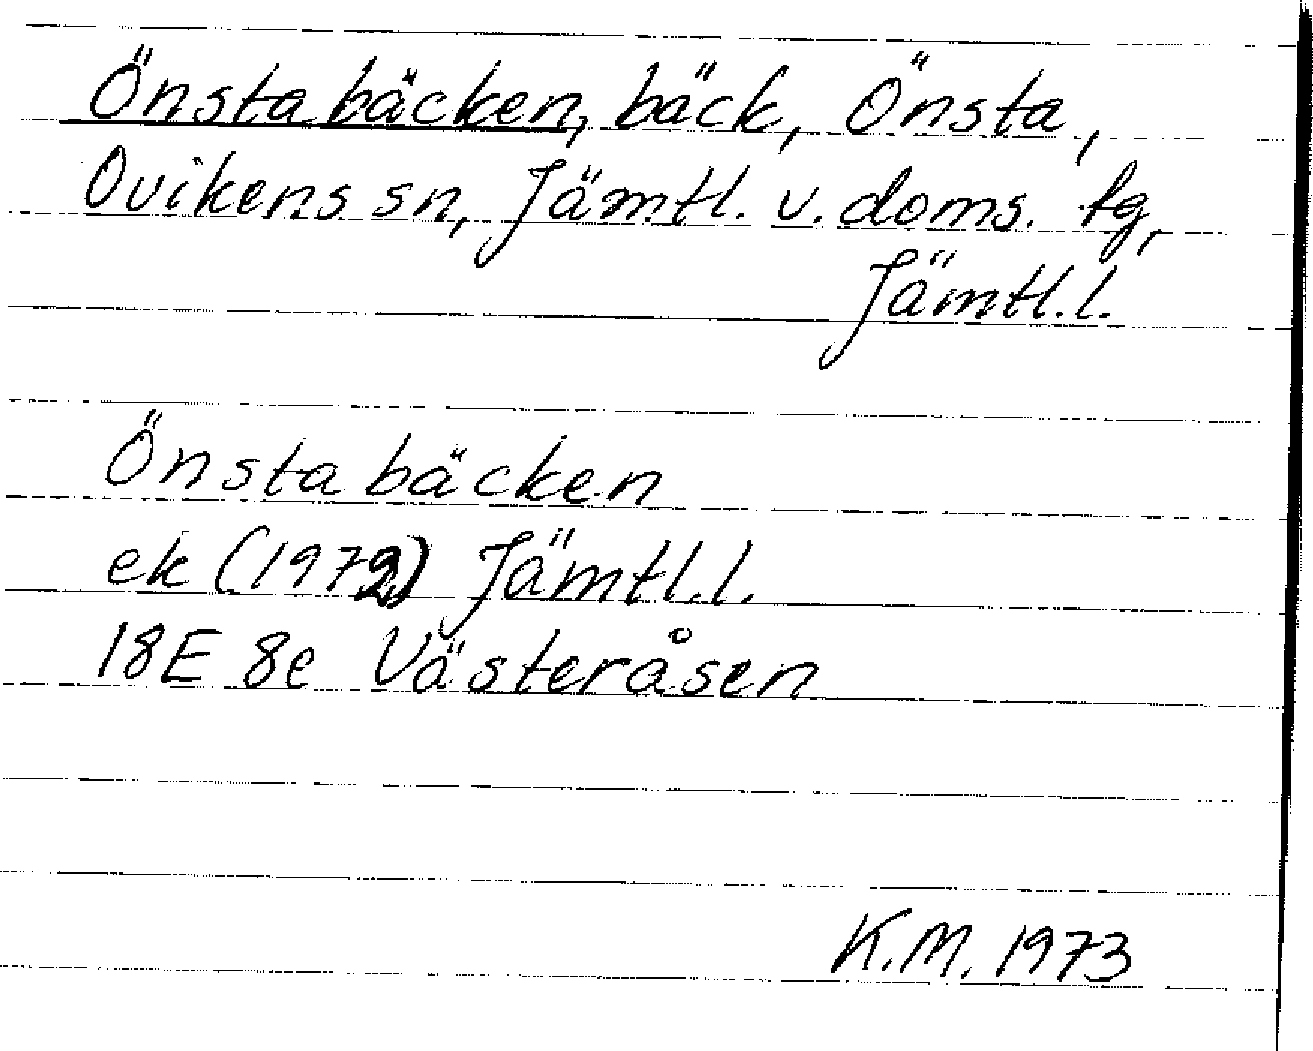 Önstabäcken, bäck, Önsta,
Ovikens sn, Jämtl. v. doms. tg,
Jämtl.l.
Önstabäcken
ek (1972) Jämtl.l.
18E 8e Västeråsen
K.M. 1973